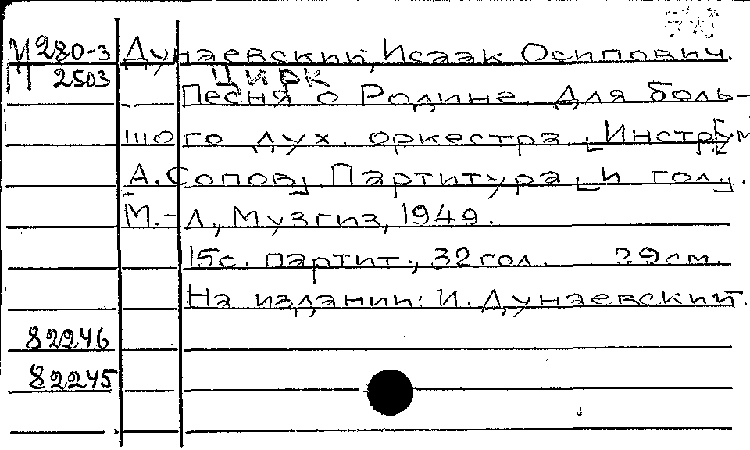 М 280-3 Дунаевский, Исаак Осипович.
М 2503 Цирк
Песня о Родине. Для боль-
шого дух. оркестра. [Инструм.
А. Сопов]. Партитура [и гол.].
М.-Л., Музгиз, 1949.
15с. партит., 32 гол. 29 см.
На издании: И. Дунаевский.
82246
82245